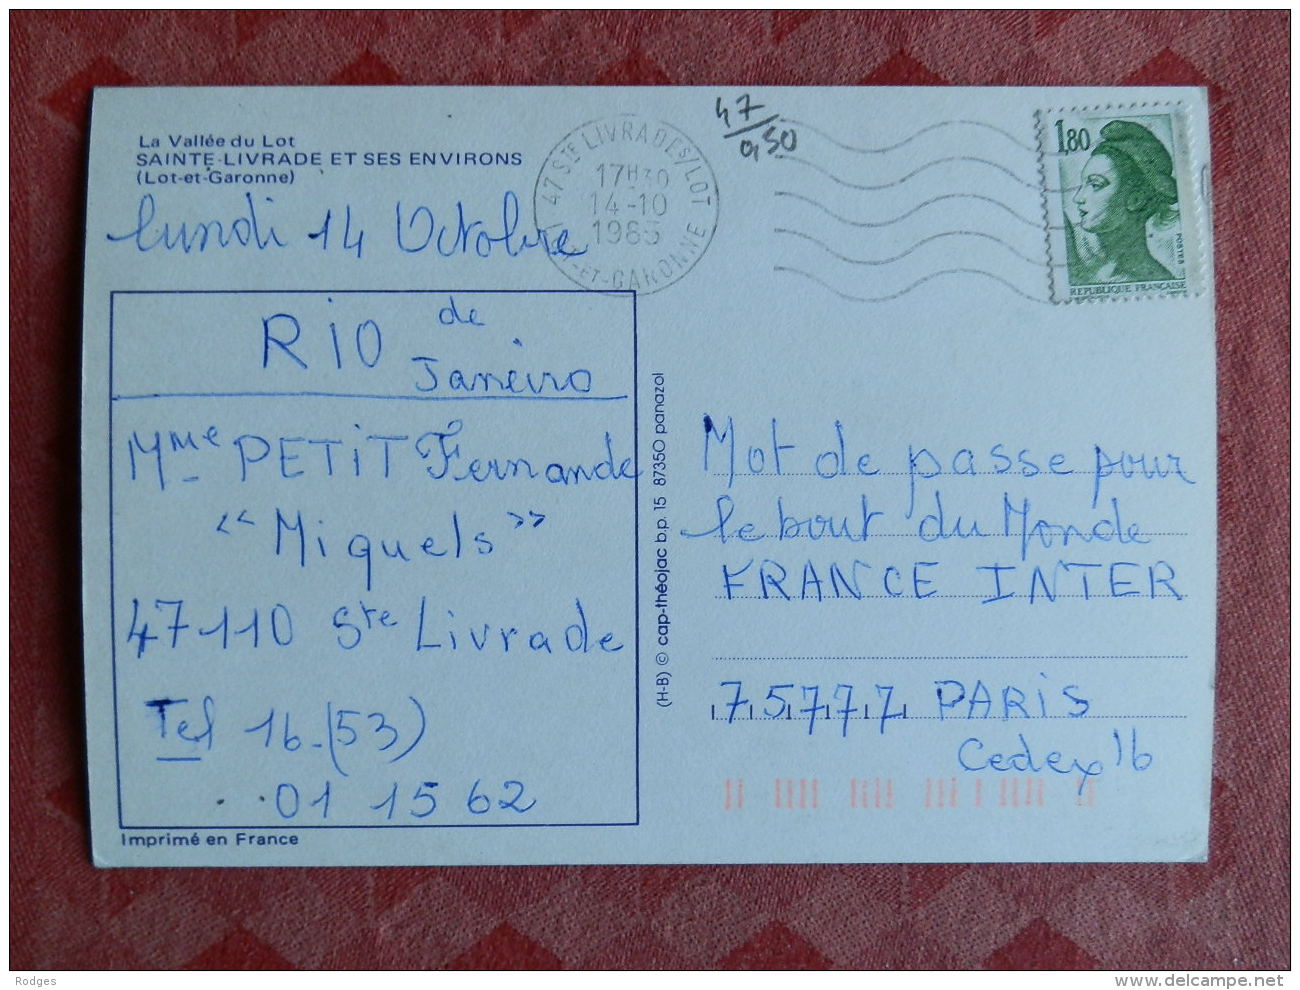 La Vallée du Lot
SAINTE-LIVRADE ET SES ENVIRONS
(Lot-et-Garonne)
lundi 14 Octobre
47 STE LIVRADE S/LOT
17H30
14-10
1985
LOT-et-GARONNE
47/
0,50
1,80
POSTES
REPUBLIQUE FRANÇAISE
RIO de
Janeiro
Mme PETIT Fernande
"Miquels"
47110 Ste Livrade
Tel 16.(53)
01 15 62
Imprimé en France
(H-B) © cap-théojac b.p. 15 87350 panazol
Mot de passe pour
le bout du Monde
FRANCE INTER
75777 PARIS
Cedex 16
Rodges
www.delcampe.net